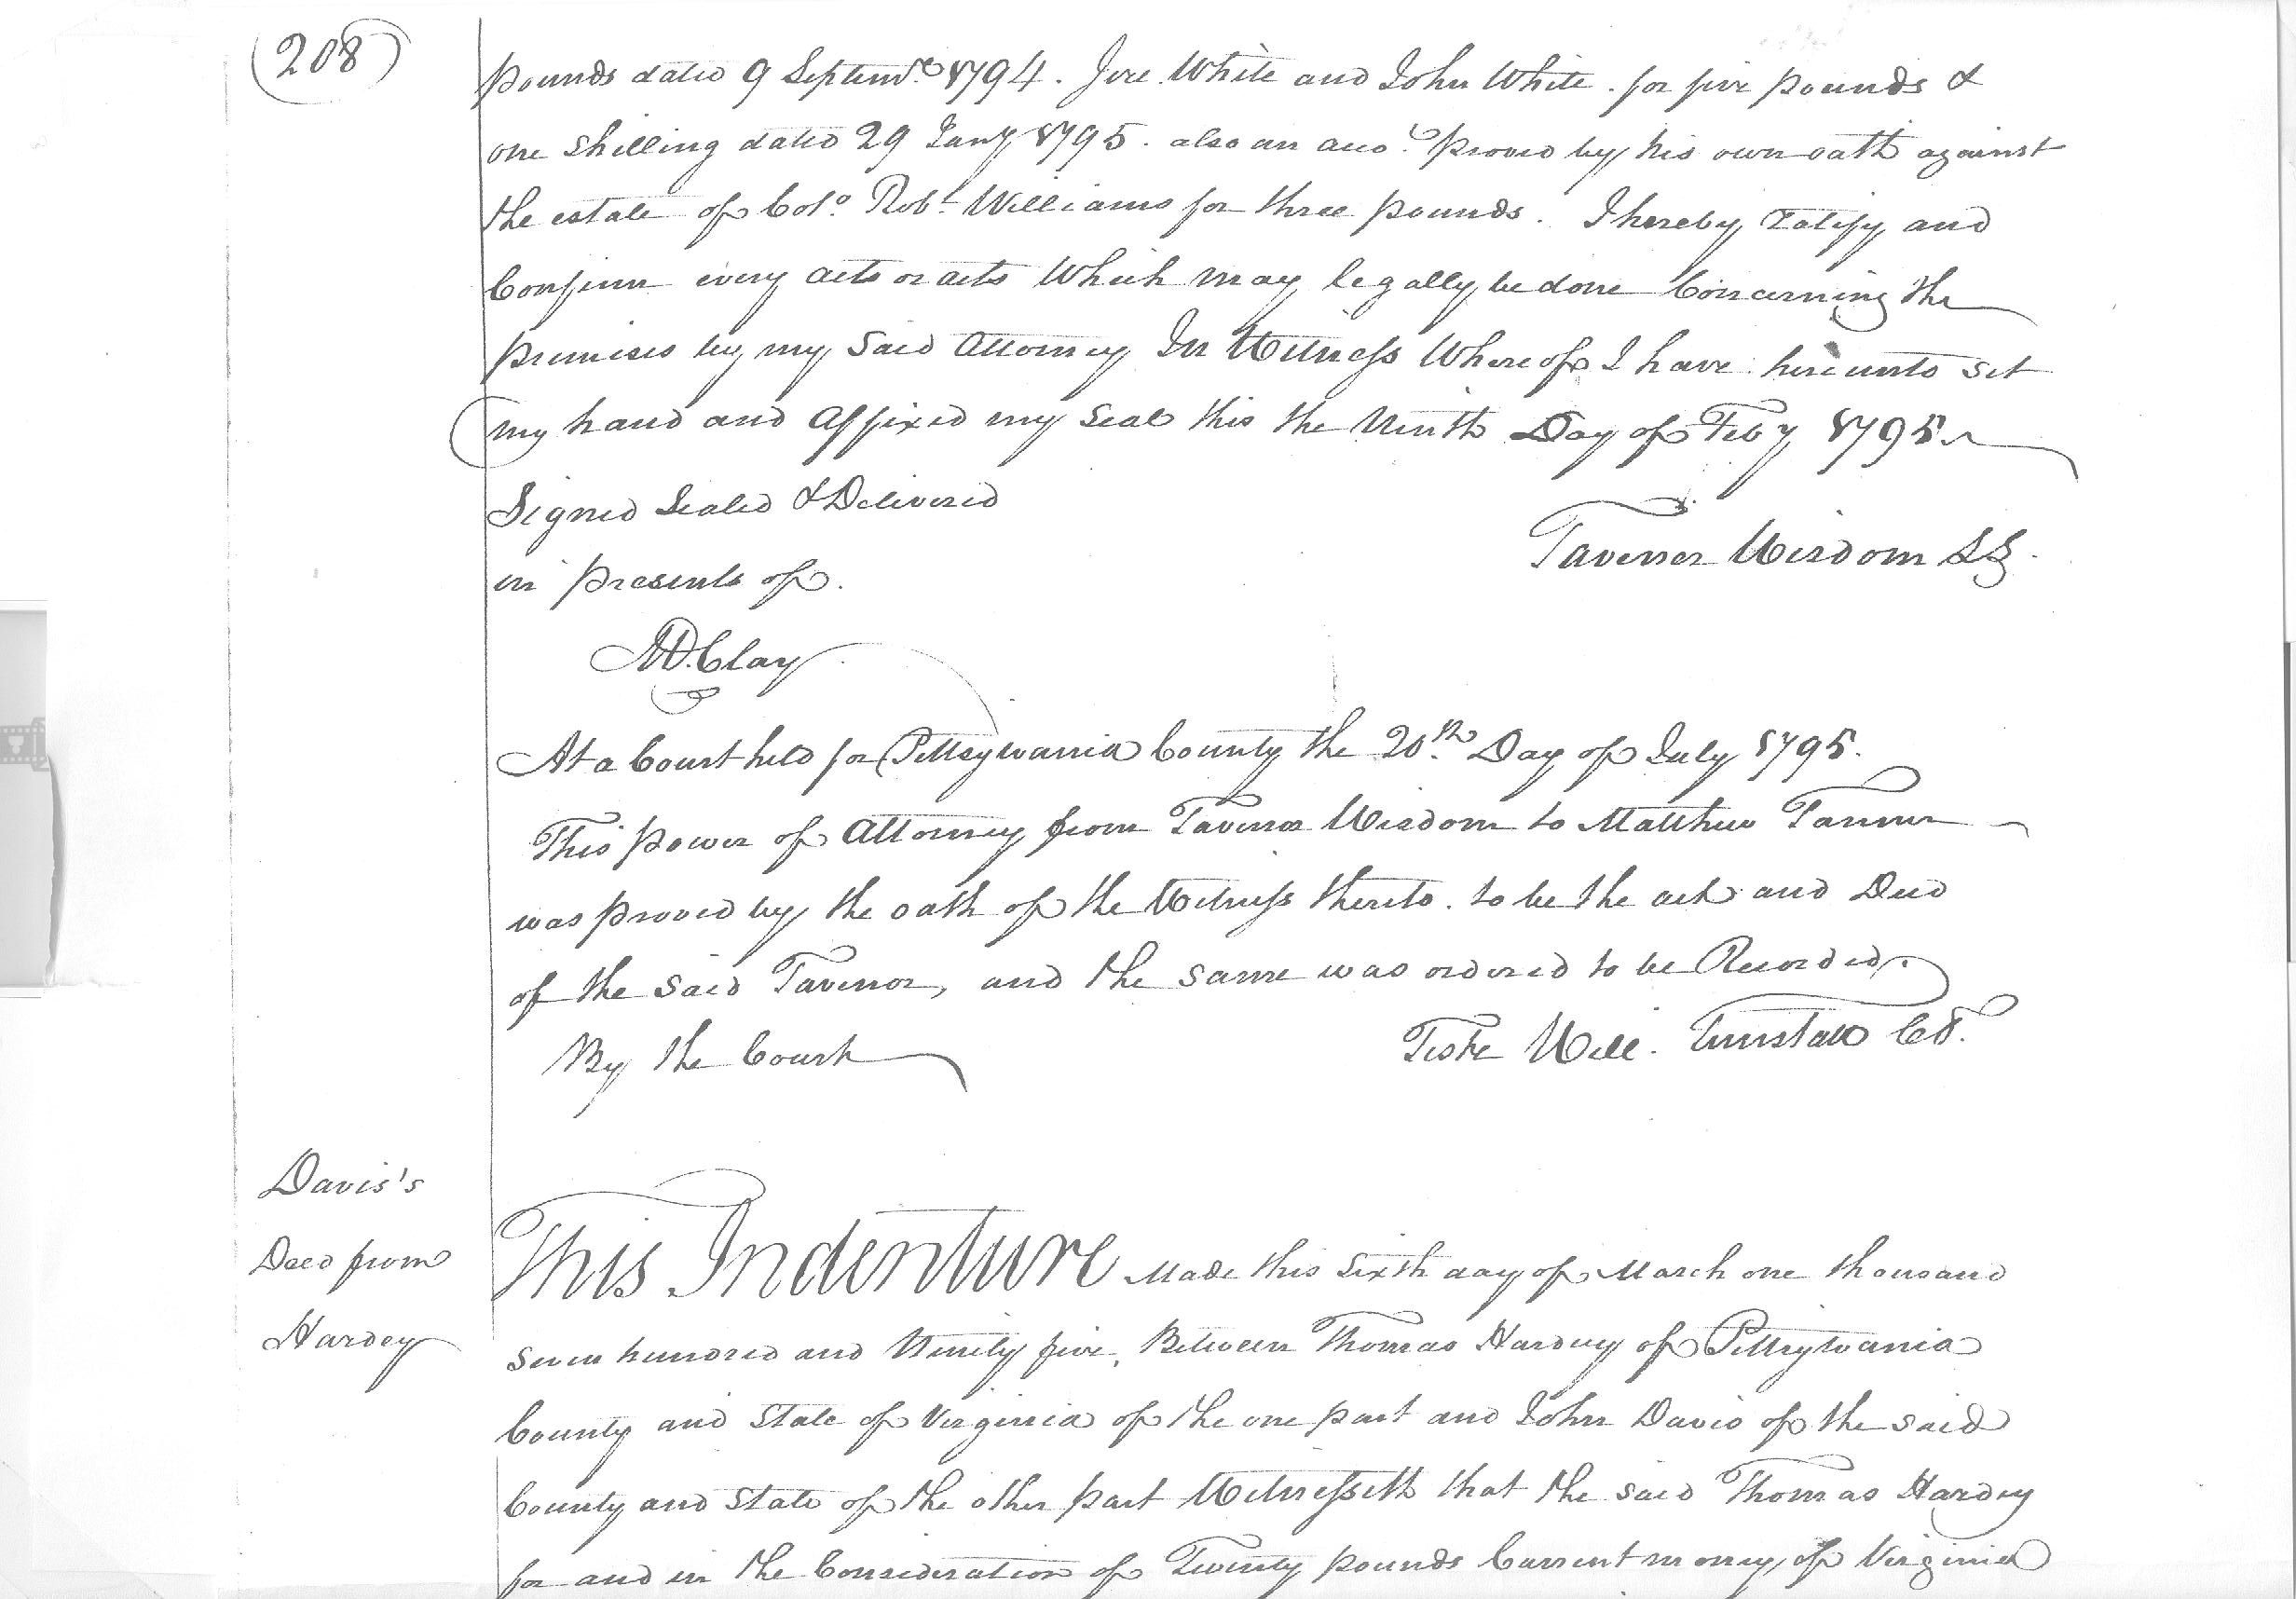 (208)
pounds dated 9 Septemr. 1794. Jere. White and John White. for five pounds &
one shilling dated 29 Jany 1795. also an acct. proved by his own oath against
the estate of Colo. Robt. Williams for three pounds. I hereby ratify and
Confirm every acts or acts Which may legally be done Concerning the
premises by my said Attorney In Witness Whereof I have hereunto set
my hand and Affixed my Seal this the Ninth Day of Feby 1795
Signed Sealed & Delivered
in presents of.
Tavenor Wisdom LS.
M. Clay
At a Court held for Pittsylvania County the 20th. Day of July 1795.
This power of Attorney from Tavenor Wisdom to Matthew Tanner
was proved by the oath of the Witness thereto. to be the act and Deed
of the said Tavenor, and the same was ordered to be Recorded.
By the Court
Teste Will. Tunstall CC.
Davis's
Deed from
Hardey
This Indenture Made this sixth day of March one thousand
seven hundred and Ninety five, Between Thomas Hardey of Pittsylvania
County and State of Virginia of the one part and John Davis of the said
County and State of the other part Witnesseth that the said Thomas Hardey
for and in the Consideration of Twenty pounds Current money of Virginia